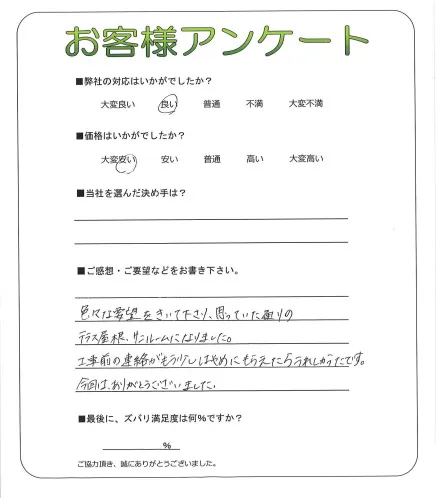 お客様アンケート
■弊社の対応はいかがでしたか？
大変良い 良い 普通 不満 大変不満
■価格はいかがでしたか？
大変安い 安い 普通 高い 大変高い
■当社を選んだ決め手は？
■ご感想・ご要望などをお書き下さい。
色々な要望をきいて下さり、思っていた通りの
テラス屋根、サンルームになりました。
工事前の連絡がもう少しはやめにもらえたらうれしかったです。
今回は、ありがとうございました。
■最後に、ズバリ満足度は何％ですか？
％
ご協力頂き、誠にありがとうございました。